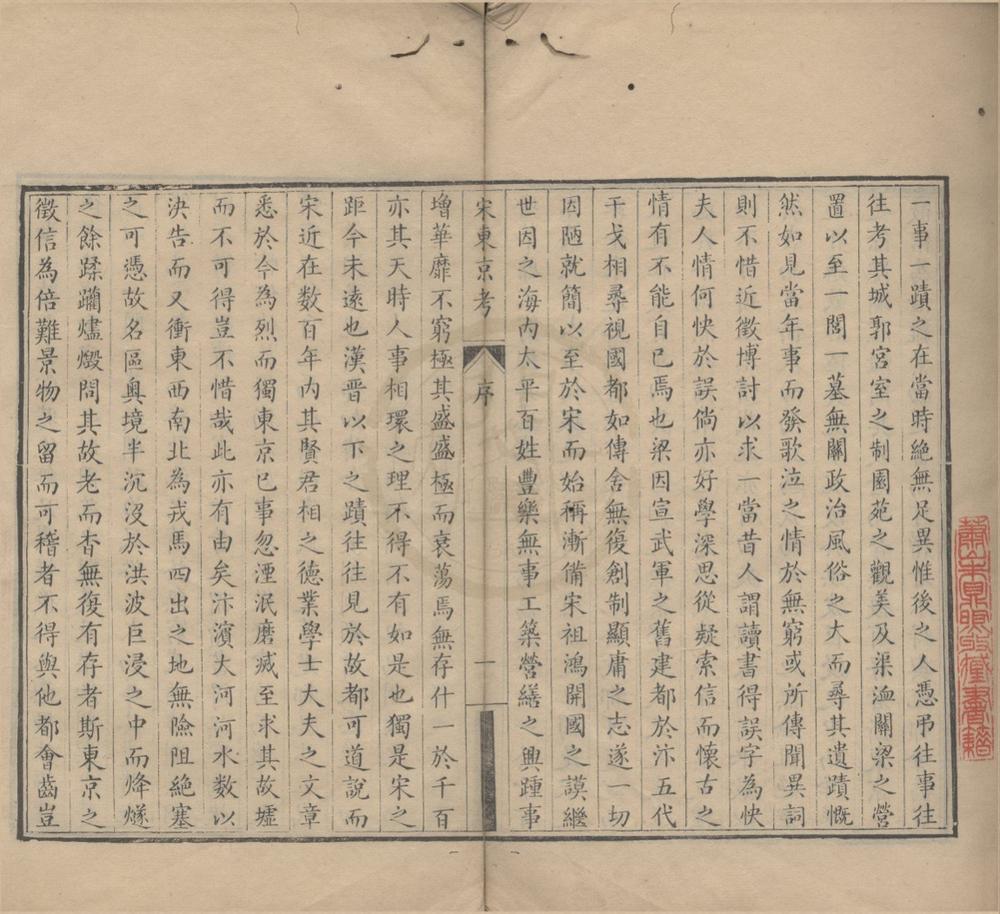 一事一蹟之在當時絕無足異惟後之人憑弔往事往
往考其城郭宮室之制園苑之觀美及渠洫關梁之營
置以至一閭一墓無關政治風俗之大而尋其遺蹟慨
然如見當年事而發歌泣之情於無窮或所傳聞異詞
則不惜近徵博討以求一當昔人謂讀書得誤字為快
夫人情何快於誤倘亦好學深思從疑索信而懷古之
情有不能自已焉也梁因宣武軍之舊建都於汴五代
干戈相尋視國都如傳舍無復創制顯庸之志遂一切
因陋就簡以至於宋而始稱漸備宋祖鴻開國之謨繼
世因之海内太平百姓豐樂無事工築營繕之興踵事
宋東京考
序
一
增華靡不窮極其盛盛極而衰蕩焉無存什一於千百
亦其天時人事相環之理不得不有如是也獨是宋之
距今未遠也漢晉以下之蹟往往見於故都可道說而
宋近在数百年内其賢君相之德業學士大夫之文章
悉於今為烈而獨東京已事忽湮泯磨滅至求其故墟
而不可得豈不惜哉此亦有由矣汴濱大河河水数以
決告而又衝東西南北為戎馬四出之地無險阻絕塞
之可憑故名區奧境半沉沒於洪波巨浸之中而烽燧
之餘蹂躪燼燬問其故老而杳無復有存者斯東京之
徵信為倍難景物之留而可稽者不得與他都會齒豈